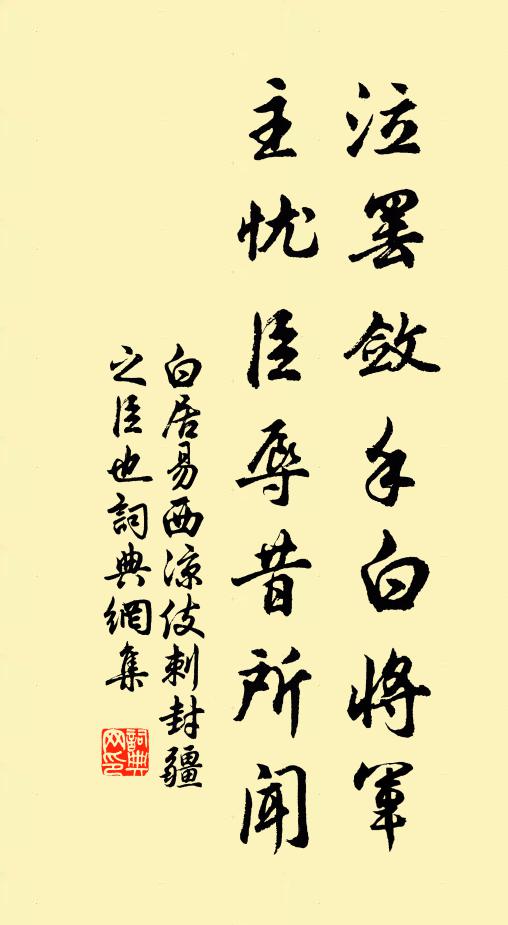 泣罷斂手白將軍
主忧臣辱昔所聞
白居易西凉伎刺封疆
之臣也詞典網集
詞典
网印